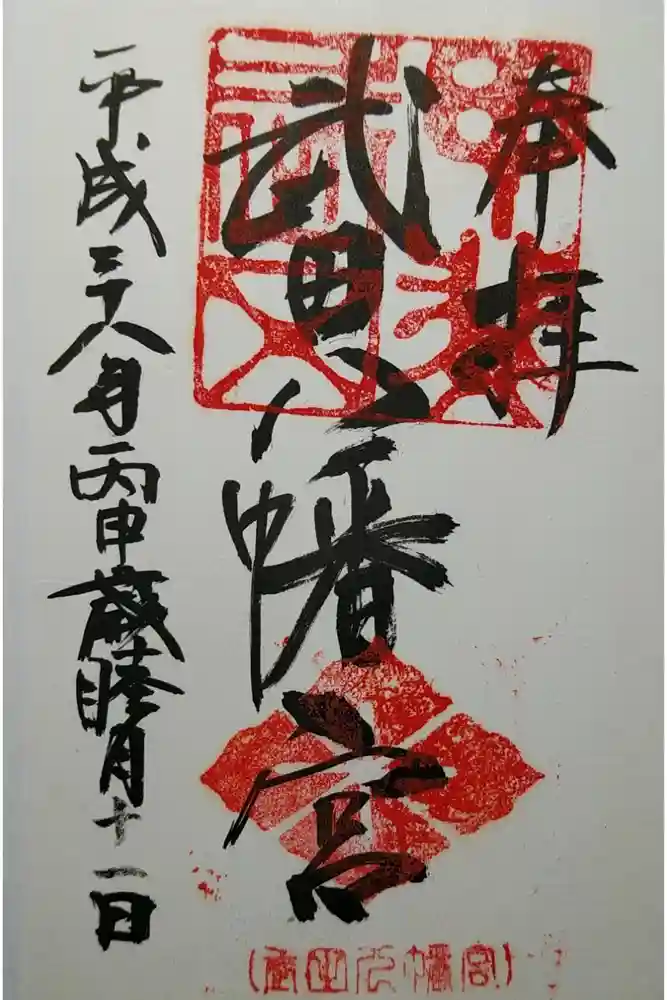 奉拝
武田八幡宮
平成二十八年丙申歳睦月十一日
(武田八幡宮)